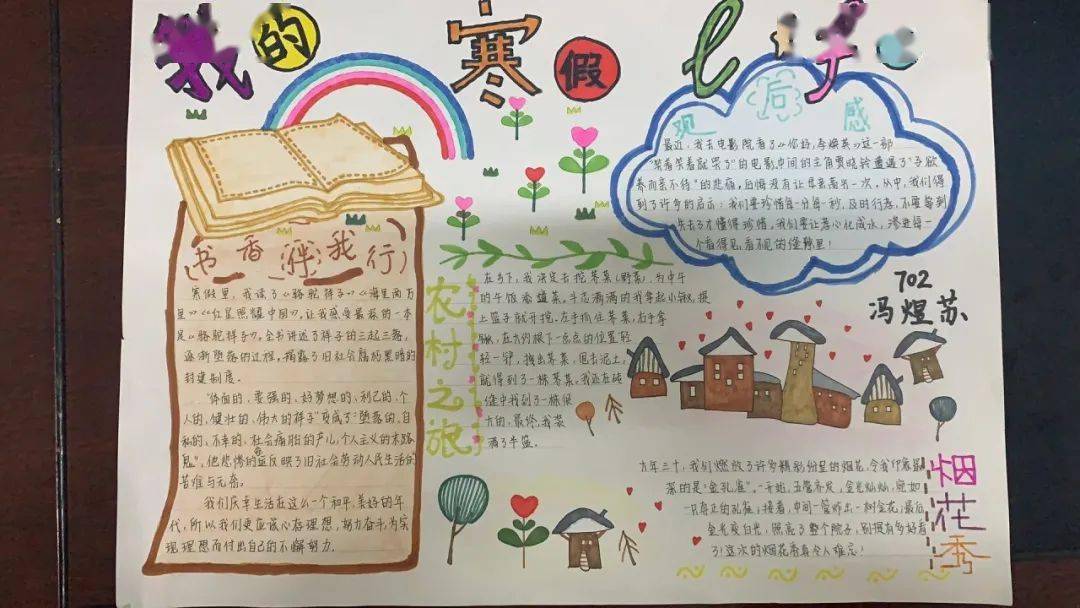 我的寒假life
书香伴我行
寒假里，我读了《骆驼祥子》《海里两万
里》《红星照耀中国》，让我感受最深的一本
是《骆驼祥子》。全书讲述了祥子的三起三落，
逐渐堕落的过程，揭露了旧社会腐朽黑暗的
封建制度。
“体面的、要强的、好梦想的、利己的、个
人的、健壮的、伟大的祥子”变成了“堕落的、自
私的、不幸的、社会病胎的产儿，个人主义的末路
鬼”，他悲惨的反映了旧社会劳动人民生活的
苦难与无奈。
我们庆幸生活在这么一个和平、美好的年
代，所以我们更应该心存理想，努力奋斗，为实
现理想而付出自己的不懈努力。
观后感
最近，我去电影院看了《你好，李焕英》这一部
“笑着笑着就哭了”的电影。中间的主角贾晓玲遭遇了“子欲
养而亲不待”的悲痛，后悔没有让母亲高兴一次。从中，我们得
到了许多的启示：我们要珍惜每一分每一秒，及时行孝，不要等到
失去了才懂得珍惜。我们要让孝心化成水，渗进每一
个看得见，看不见的缝隙里！
702
冯煜苏
农村之旅
在乡下，我决定去挖荠菜（野菜），为中午
的午饭添道菜。斗志满满的我拿起小锹，提
上篮子就开挖。左手抓住荠菜，右手拿
锹，在大约根下一点点的位置轻
轻一铲，拽出荠菜，甩去泥土，
就得到了一棵荠菜。我还在砖
缝中找到了一棵很
大的，最终，我装
满了半篮。
烟花秀
大年三十，我们燃放了许多精彩纷呈的烟花，令我印象最
深的是“金孔雀”。一开始，五管齐发，金光灿灿，宛如
一只真正的孔雀；接着，中间一管炸出一树金花；最后，
金光变白光，照亮了整个院子，别提有多好看
了！这次的烟花秀真令人难忘！